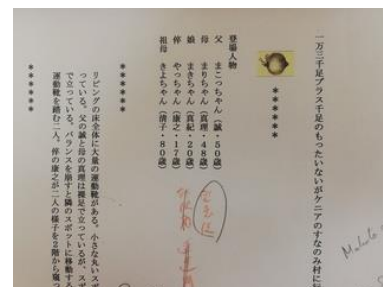 一万三千足プラス千足のもったいないがケニアのすなのみ村に
＊＊＊＊＊
登場人物
父　まこっちゃん（誠・５０歳）
母　まりちゃん（真理・４８歳）
娘　まきちゃん（真紀・２０歳）
倅　やっちゃん（康之・１７歳）
祖母　きよちゃん（清子・８０歳）
＊＊＊＊＊
リビングの床全体に大量の運動靴がある。小さな丸いス
っている。父の誠と母の真理は裸足で立っているが、スポ
で立っている。バランスを崩すと隣のスポットに移動する
運動靴を踏む二人。倅の康之が二人の様子を２階から窺っ
＊＊＊＊＊